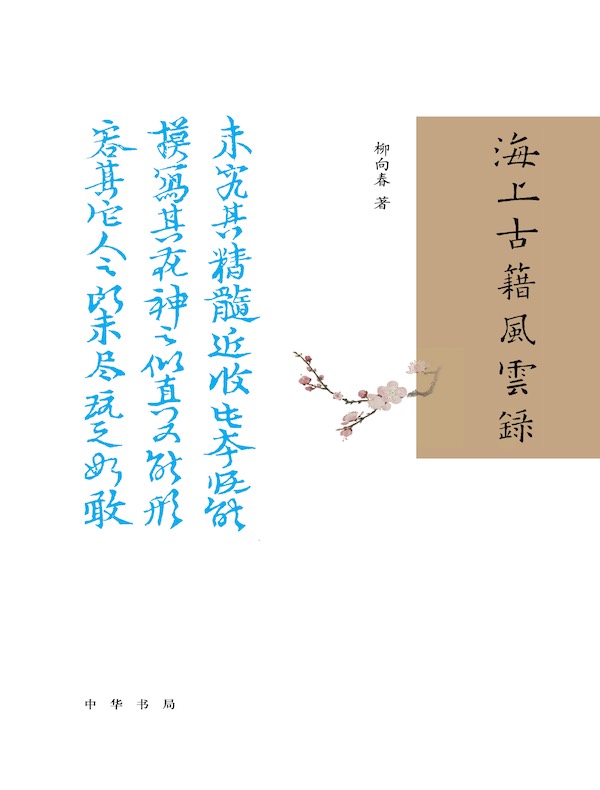 海上古籍風雲録
柳向春 著
未究其精髓近收此本既能
摸寫其夜神之似直又能形
容其它人之所未尽玩之如敢
中华书局